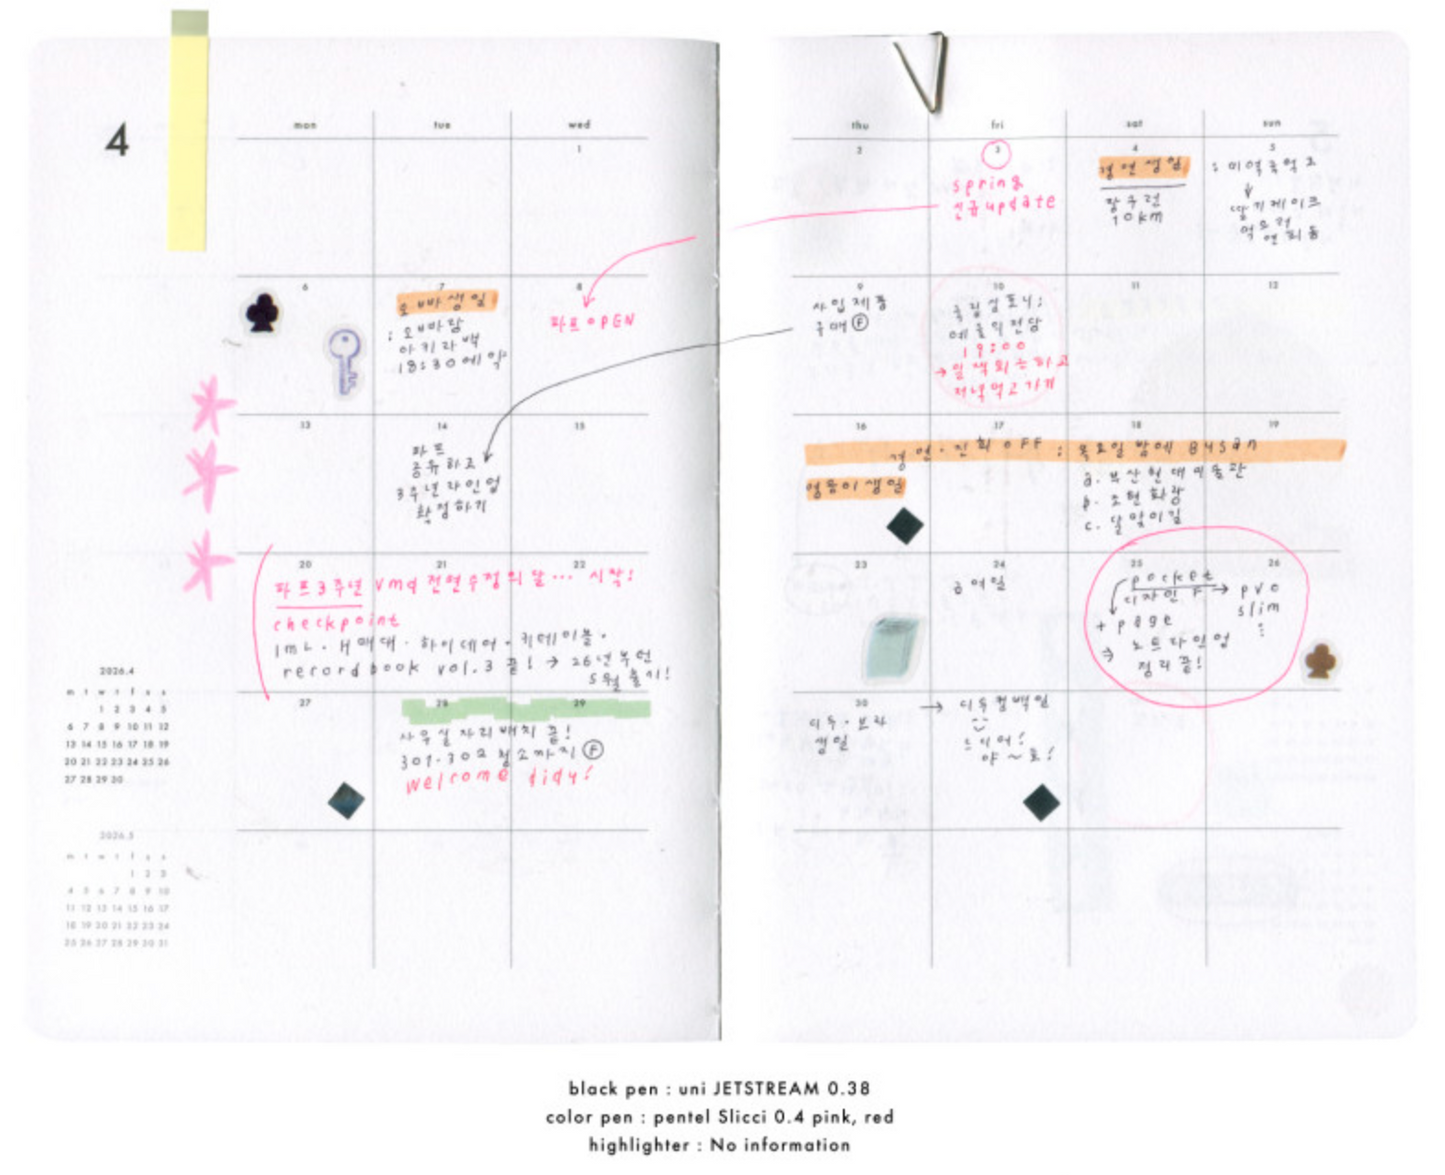 4
mon tue wed
thu fri sat sun
1
2 3 4 5
spring
신규 update
경연생일
장우런
10km
: 미역국먹고
딸기케이크
먹으러
연희동
6 7 8
오빠생일
: 오빠랑
아키라백
18:30예약
파프OPEN
9 10 11 12
사입제품
구매 F
국립심포니;
예술의전당
19:00
→ 일찍퇴근하고
저녁먹고가기
13 14 15
파프
공유하고
3주년라인업
확정하기
16 17 18 19
경연·진희 OFF ; 목요일밤에 Busan
영웅이생일
a. 부산현대미술관
b. 조현화랑
c. 달맞이길
20 21 22
파프3주년 vmd 전면수정의달... 시작!
checkpoint
record book vol.3 끝! → 26년부턴
5월출시!
23 24 25 26
급여일
pocket
디자인 F → pvc
slim
+ page
노트라인업
정리끝!
27 28 29
사무실자리배치 끝!
301-302 청소까지 F
welcome tidy!
30
디투·보라
생일
→ 디투컴백일
드디어!
야~호!
2026.4
m t w t f s s
1 2 3 4 5
6 7 8 9 10 11 12
13 14 15 16 17 18 19
20 21 22 23 24 25 26
27 28 29 30
2026.5
m t w t f s s
1 2 3
4 5 6 7 8 9 10
11 12 13 14 15 16 17
18 19 20 21 22 23 24
25 26 27 28 29 30 31
black pen : uni JETSTREAM 0.38
color pen : pentel Slicci 0.4 pink, red
highlighter : No information